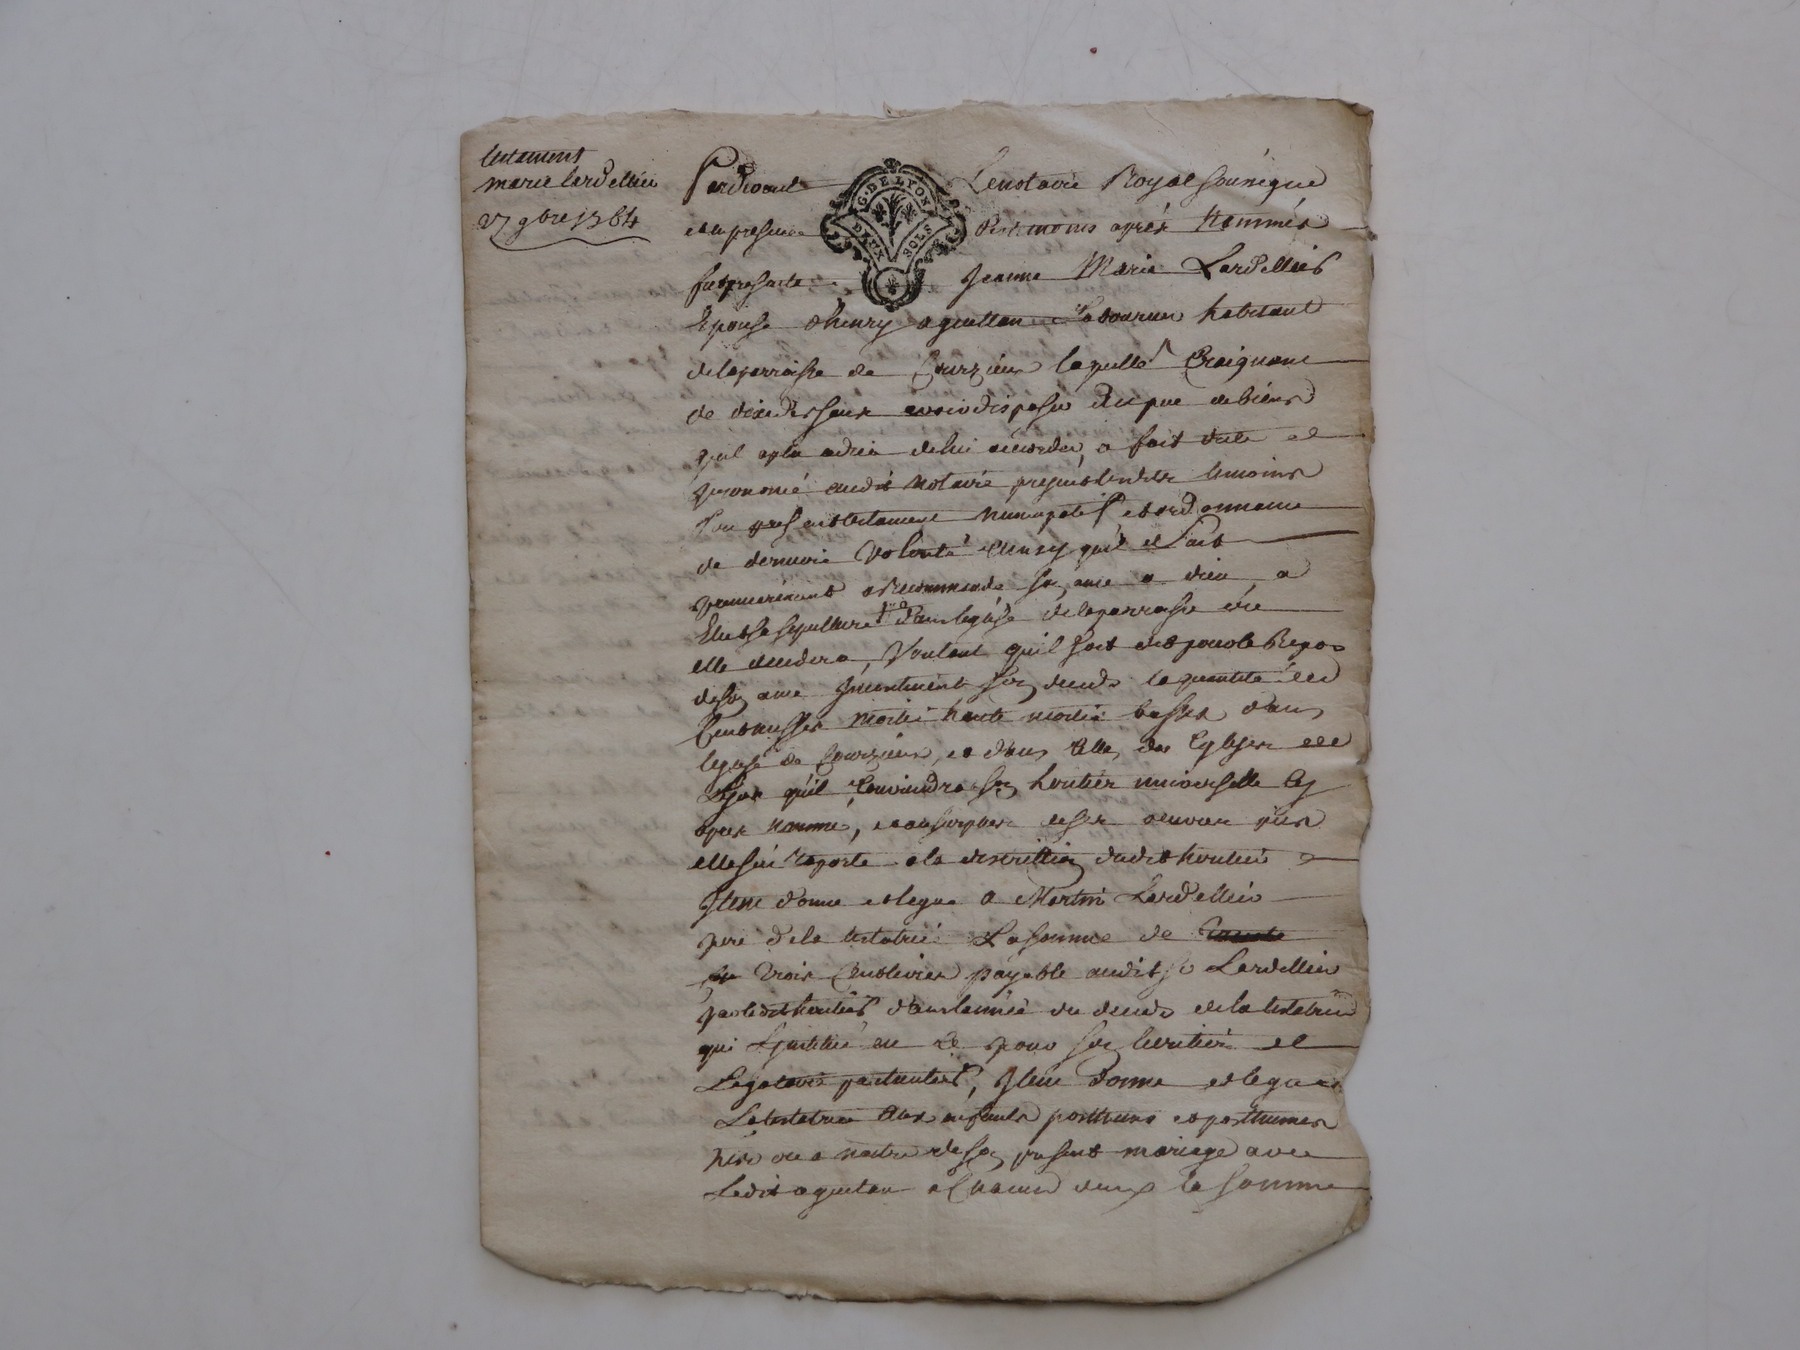 testament
marie lardellier
27 9bre 1784
G. DE LYON
DEUX SOLS
Pardevant Le notaire Royal soussigné
et en presence des temoins après Nommés
fut presente Jeanne Marie Lardellier
Epouse d'henry aguettan Laboureur habitant
de la parroisse de Courzieu laquelle Craignant
de avoir disposé du peu de biens
qu'il a plu a dieu de lui accorder, a fait dicté et
prononcé audit Notaire presents lesdits temoins
son present testament nuncupatif et ordonnance
de derniere Volonté ainsy qu'il s'en suit
premierement a Recommandé son ame a dieu, a
Elut sa sepulture dans leglise de la parroisse ou
elle decedera, Voulant qu'il soit dit pour le Repos
de son ame Incontinent son decede la quantité de
Cent messes moitié haute moitié basses dans
leglise de Courzieu, et dans telle des Eglises de
Lyon qu'il Conviendra a son heritier universelle cy
apres nommé, et au surplus de ses œuvres pies
elle s'en raporte a la discrettion dudit heritier
Item donne et legue a Martin Lardellier
pere de la testatrice La somme de
trois Cent livres payable audit sr Lardellier
par ledit heritier dans lannée du decede de la testatrice
qui Linstitue en ce pour son heritier et
Legataire particulier, Item donne et legue
La testatrice aux enfants posthume et posthumes
née ou a naitre de son present mariage avec
Ledit aguettan a Chacun deux la somme